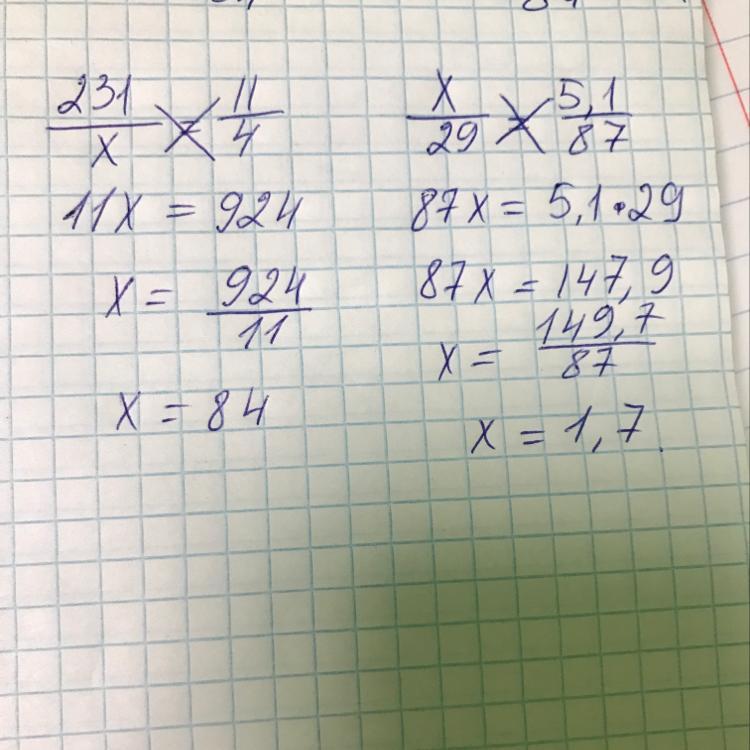 231/x = 11/4
11x = 924
x = 924/11
x = 84
x/29 = 5,1/87
87x = 5,1·29
87x = 147,9
x = 149,7/87
x = 1,7.